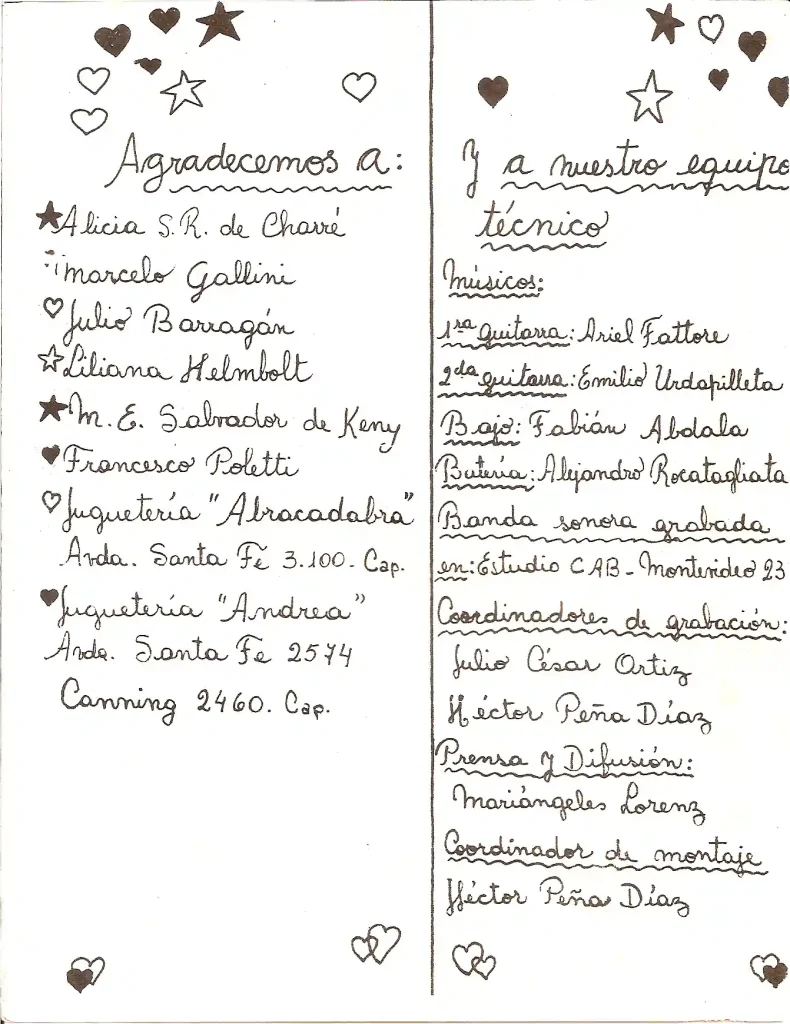 Agradecemos a:
Alicia S.R. de Charré
Marcelo Gallini
Julio Barragán
Liliana Helmbolt
M. E. Salvador de Keny
Francesco Poletti
Juguetería "Abracadabra"
Avda. Santa Fé 3.100. Cap.
Juguetería "Andrea"
Avda. Santa Fe 2574
Canning 2460. Cap.
Y a nuestro equipo
técnico
Músicos:
1ra guitarra: Ariel Fattore
2da guitarra: Emilio Urdapilleta
Bajo: Fabián Abdala
Batería: Alejandro Rocatagliata
Banda sonora grabada
en: Estudio CAB - Montevideo 23
Coordinadores de grabación:
Julio César Ortiz
Héctor Peña Díaz
Prensa y Difusión:
Mariángeles Lorenz
Coordinador de montaje
Héctor Peña Díaz